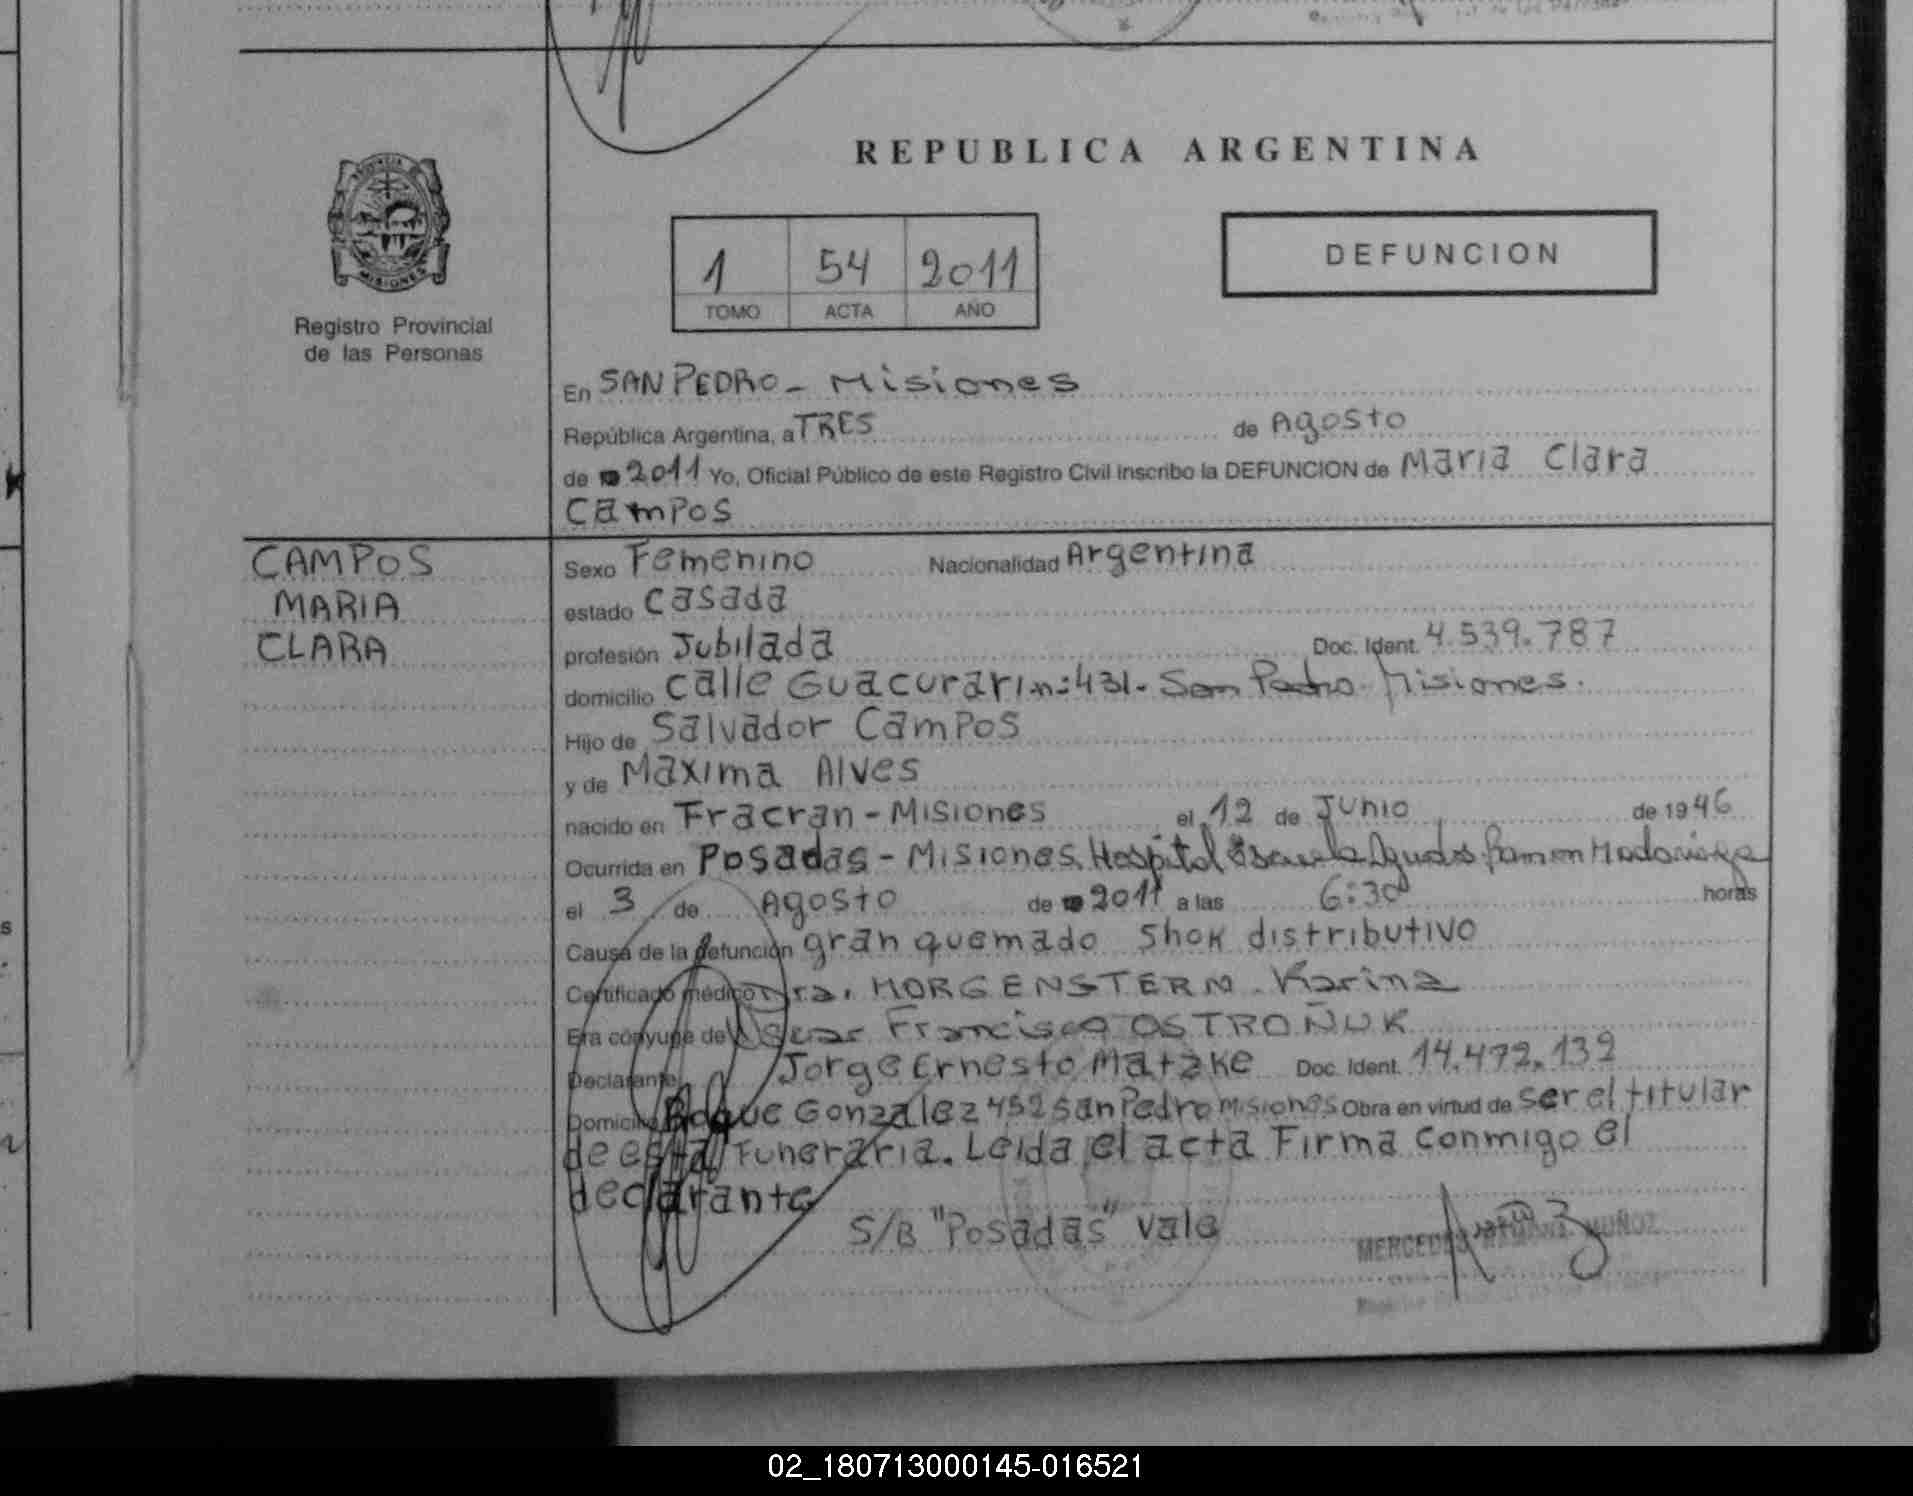 REPUBLICA ARGENTINA
PROVINCIA DE
MISIONES
Registro Provincial
de las Personas
1 54 2011
TOMO ACTA AÑO
DEFUNCION
En SAN PEDRO - Misiones
República Argentina, a TRES de Agosto
de 2011 Yo, Oficial Público de este Registro Civil inscribo la DEFUNCION de Maria Clara
Campos
CAMPOS
MARIA
CLARA
Sexo Femenino Nacionalidad Argentina
estado casada
profesión Jubilada Doc. Ident. 4.539.787
domicilio calle Guacurari n:431. San Pedro Misiones.
Hijo de Salvador Campos
y de Maxima Alves
nacido en Fracran - Misiones el 12 de Junio de 1946
Ocurrida en Posadas - Misiones. Hospital Escuela Agudos Ramon Madariaga
el 3 de Agosto de 2011 a las 6:30 horas
Causa de la defunción gran quemado shok distributivo
Certificado médico Dra. MORGENSTERN Karina
Era cónyuge de Oscar Francisco OSTROÑUK
Declarante Jorge Ernesto Matzke Doc. Ident. 14.472.132
Domicilio Roque Gonzalez 452 San Pedro Misiones Obra en virtud de ser el titular
de esta Funeraria. Leida el acta Firma conmigo el
declarante
S/B "Posadas" vale
MERCEDES MUÑOZ
02_180713000145-016521